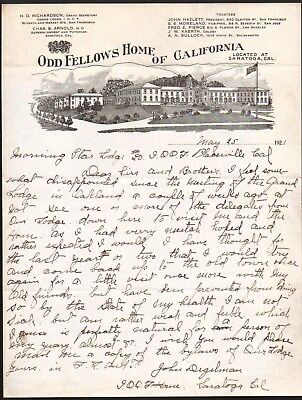 H. D. RICHARDSON, GRAND SECRETARY
GRAND LODGE, I. O. O. F.
SEVENTH AND MARKET STS., SAN FRANCISCO
CHAS. B. ARNOLD, M. D.
SUPERINTENDENT AND PHYSICIAN
SARATOGA, CAL.
TRUSTEES
JOHN HAZLETT, PRESIDENT, 920 CLAYTON ST., SAN FRANCISCO
S. E. MORELAND, VICE PRES., 24 N. SEVENTH ST., SAN JOSE
FRED E. PIERCE, LOS ANGELES
J. W. AKERTH, COLUSA
A. N. BULLOCK, SACRAMENTO
ODD FELLOWS HOME OF CALIFORNIA
LOCATED AT
SARATOGA, CAL.
May 25 1921
Morning Star Lodge 20 I.O.O.F. Placerville Cal
Dear Sirs and Brothers, I felt some
what disappointed since the meeting of the Grand
Lodge in Oakland a couple of weeks ago at
not seeing one or more of the delegates from
Our Lodge down here to visit me and the
Home as I had very much hoped and
rather expected I would. I have thought for
the last year or two that I would try
and come back up to the old town once
again for a little visit once more with my
Old friends, but have been prevented from doing
so by the State of my Health, I am not
sick, but am rather frail and feeble which
I guess is perfectly natural for a person of
my years, almost 80. I wish you would please
send me a copy of the bylaws of Our Lodge
Yours in F. L. and T.
John Degelman
I.O.O.F. Home, Saratoga Cal